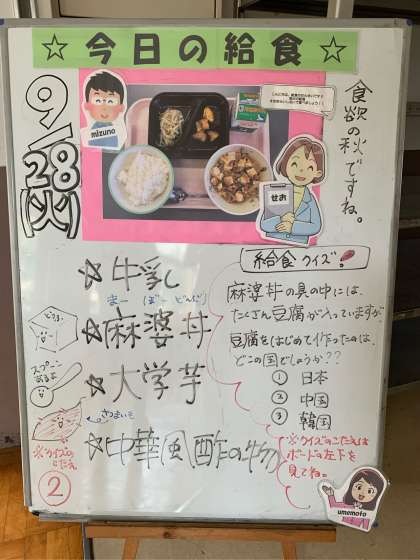 ☆今日の給食☆
9/28(火)
mizuno
せお
食欲の秋ですね。
☆牛乳
まーぼーどんぶり
☆麻婆丼
☆大学芋
さつまいも
☆中華風酢の物
とうふ
スプーン
あるよ
※クイズのこたえ
②
給食クイズ!
麻婆丼の具の中には、
たくさん豆腐が入っていますが、
豆腐をはじめて作ったのは、
どこの国でしょうか??
① 日本
② 中国
③ 韓国
※クイズのこたえは
ボードの左下を
見てね。
umemoto